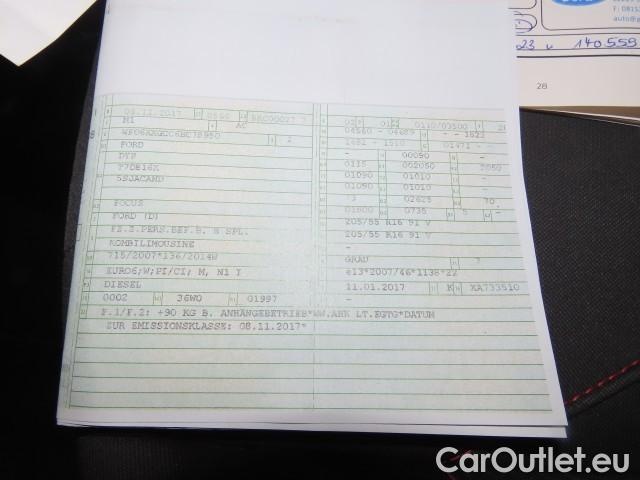 F: 0815
auto@
23 u 140.559
28
08.11.2017 8566
M1 AC
2
FORD
DYB
FOCUS
FORD (D)
FZ.Z.PERS.BEF.B. 8 SPL.
KOMBILIMOUSINE
715/2007*136/2014W
EURO6;W;PI/CI; M, N1 I
DIESEL
0002 36W0 01997
0110/03500
04560 - 04689 - - 1823
- 01471 - -
- 00050 -
0115 002050 2050
01090 01010 -
01090 01010 -
3 02625 70
01800 0735 5 -
205/55 R16 91 V
205/55 R16 91 V
-
GRAU 7
e13*2007/46*1138*22
11.01.2017 K XA733510
-
F.1/F.2: +90 KG B. ANHÄNGEBETRIEB*WW.AHK LT.EGTG*DATUM
ZUR EMISSIONSKLASSE: 08.11.2017*
CarOutlet.eu